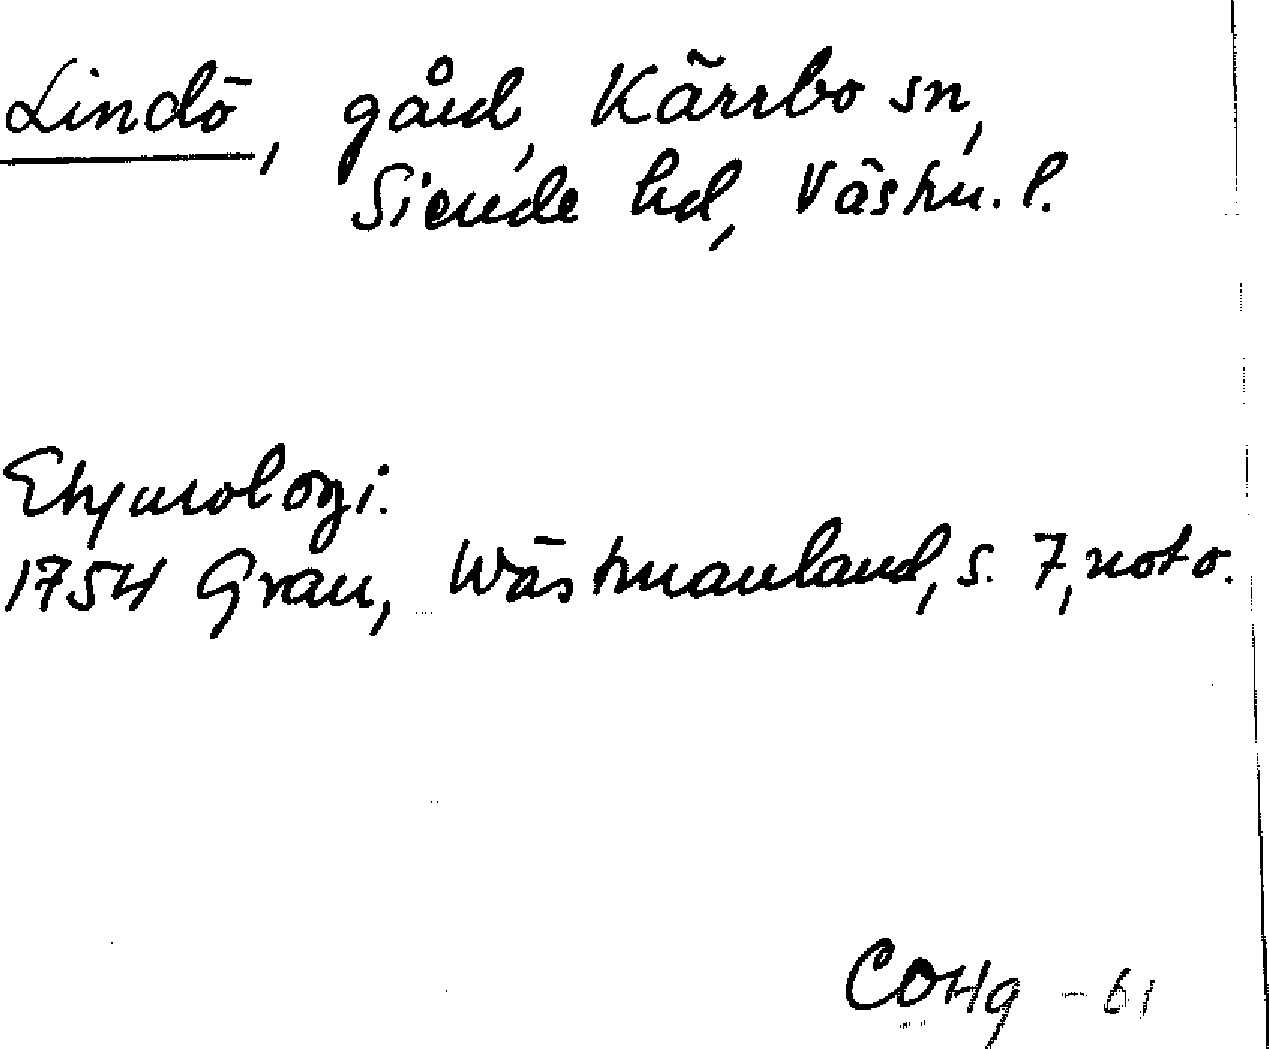 Lindö, gård, Kärrbo sn,
Siende hd, Västm. l.
Etymologi.
1754 Grau, Wästmanland, s. 7, not o.
COHg - 61